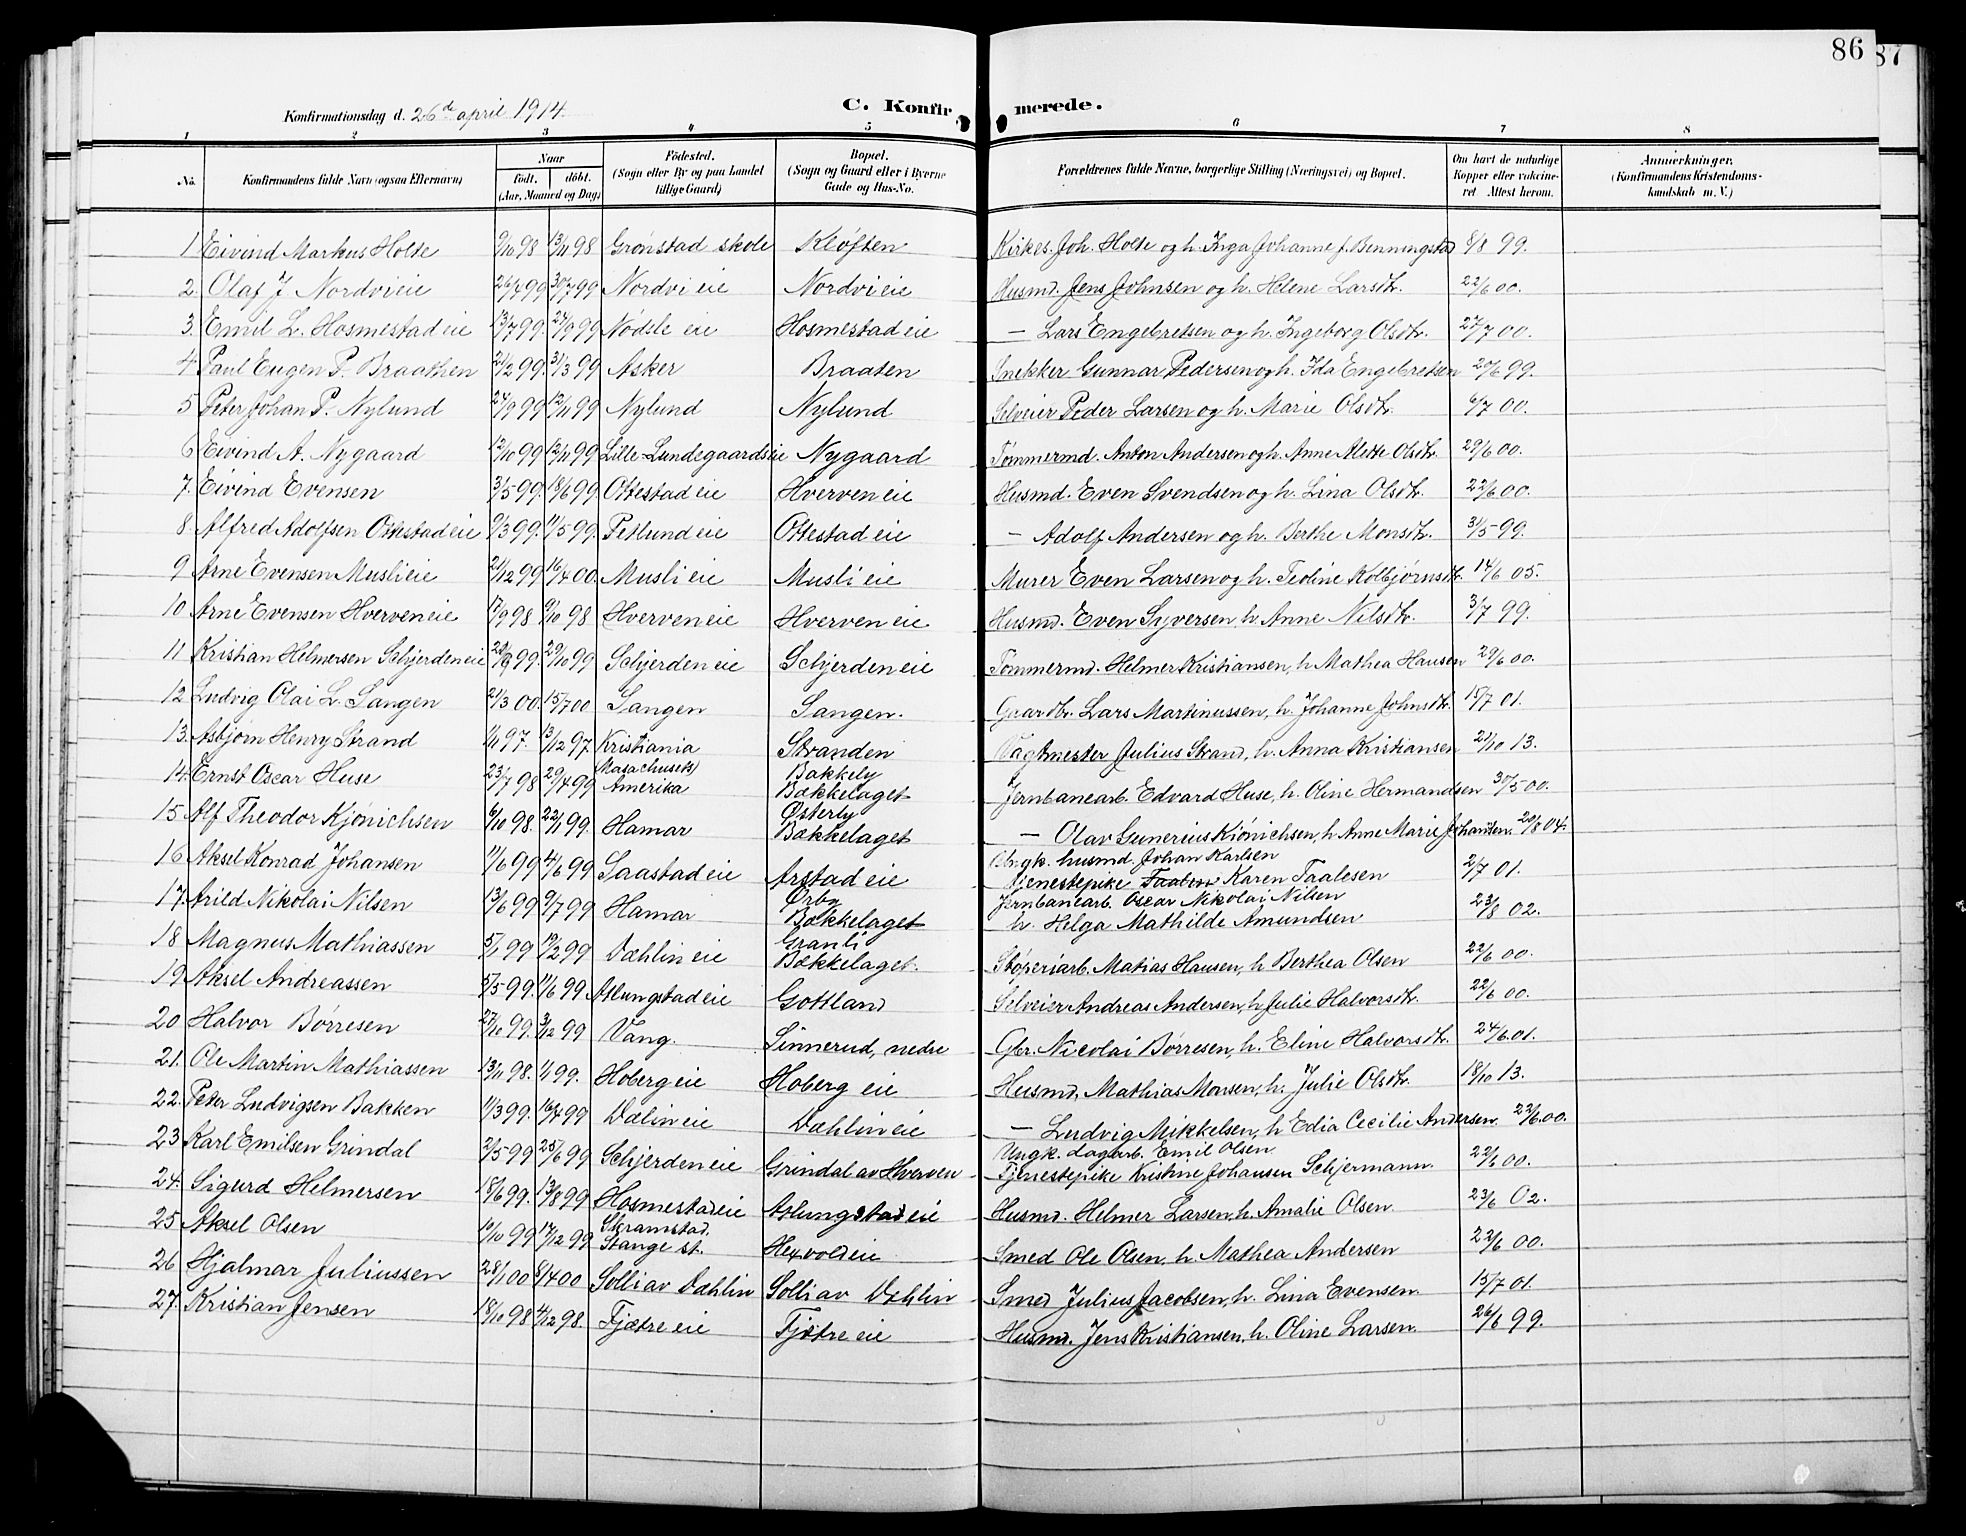 86
87
Konfirmationsdag d. 26de april 1914.
C. Konfirmerede.
1 2 3 4 5 6 7 8
No. Konfirmandens fulde Navn (ogsaa Efternavn) Naar født. døbt. (Aar, Maaned og Dag) Fødested. (Sogn eller By og paa Landet tillige Gaard) Bopæl. (Sogn og Gaard eller i Byerne Gade og Hus-No. Forældrenes fulde Navne, borgerlige Stilling (Næringsvei) og Bopæl. Om havt de naturlige Kopper eller vaccineret. Attest herom. Anmerkninger. (Konfirmandens Kristendomskundskab m. V.)
1 Eivind Markus Holte 9/10 98 13/11 98 Grønstad skole Kløften Kirkes. Joh. Holte og h. Inga Johanne f. Benningstad 8/8 99.
2. Olaf J. Nordvi eie 26/4 99 30/7 99 Nordvi eie Nordvi eie Husmd. Jens Johnsen og h. Helene Larsdtr. 22/6 00.
3. Emil L. Hosmestad eie 13/7 99. 24/9 99 Nødele eie Hosmestad eie — Lars Engebretsen og h. Ingeborg Olsdtr. 27/7 00.
4 Paul Eugen P. Braathen 21/2 99. 31/3 99 Asker Braaten Snekker Gunnar Pedersen og h. Ida Engebretsen 20/6 99.
5 Peter Johan P. Nylund 24/9 99 12/11 99 Nylund Nylund Selveier Peder Larsen og h. Marie Olsdtr. 6/7 00.
6 Eivind A. Nygaard 12/10 99 12/11 99 Lille-Lundegaards eie Nygaard Tømmermd. Anton Andersen og h. Anne Mette Olsdtr. 29/6 00.
7. Eivind Evensen 3/5 99. 18/6 99. Ottestad eie Hverven eie Husmd. Even Svendsen og h. Lina Olsdtr. 22/6 00.
8. Alfred Adolfsen Ottestad eie 9/3 99. 11/5 99. Petlund eie Ottestad eie — Adolf Andersen og h. Berthe Monsdtr. 31/5 99.
9 Arne Evensen Musli eie 21/12 99 16/4 00. Musli eie Musli eie Murer Even Larsen og h. Teoline Kolbjørnsdtr. 14/6 05.
10 Arne Evensen Hverven eie 17/9 98 9/10 98 Hverven eie Hverven eie Husmd. Even Syversen, h. Anne Nilsdtr. 3/7 99.
11 Kristian Helmersen Schjerden eie 28/9 99. 29/10 99 Schjerden eie Schjerden eie Tømmermd. Helmer Kristiansen, h. Mathea Hansen 29/6 00.
12 Ludvig Olai L. Sangen 21/3 00. 15/7 00 Sangen Sangen. Gaardbr. Lars Martinussen, h. Johanne Johnsdtr. 15/7 01.
13. Asbjørn Henry Strand 1/11 97. 13/12 97. Kristiania Stranden Vagtmester Julius Strand, h. Anna Kristiansen 21/10 13.
14. Ernst Oscar Huse 23/7 98 29/4 99 Masachusets Amerika Bakkely Bækkelaget Jernbanearb. Edvard Huse, h. Oline Hermandsen 30/5 00.
15 Alf Theodor Kjønichsen 6/10 98. 22/1 99. Hamar Østerly Bækkelaget — Olav Gunerius Kjønichsen, h. Anne Marie Johansen. 20/8 04.
16 Aksel Konrad Johansen 1/6 99 4/6 99 Saastad eie Arstad eie Ungk. husmd. Johan Karlsen Tjenestepike Karen Taalesen 2/7 01.
17. Arild Nikolai Nilsen 13/6 99 9/7 99 Hamar Ørby Bækkelaget Jernbanearb. Oscar Nikolai Nilsen h. Helga Mathilde Amundsen 23/8 02.
18 Magnus Mathiassen 5/1 99 19/2 99 Dæhlin eie Granli Bækkelaget. Støperiarb. Matias Hansen, h. Berthea Olsen 22/6 00.
19 Aksel Andreassen 5/5 99. 11/6 99 Atlungstad eie Gottland Selveier Andreas Andersen, h. Julie Halvorsdtr. 22/6 00.
20 Halvor Børresen 27/10 99. 3/12 99 Vang. Sinnerud, nedre Gbr. Nicolai Børresen, h. Eline Halvorsdtr. 24/6 01.
21. Ole Martin Mathiassen 13/11 98. 1/1 99. Hoberg eie Hoberg eie Husmd. Mathias Monsen, h. Julie Olsdtr. 18/10 13.
22. Peter Ludvigsen Bakken 11/3 99. 16/4 99 Dælin eie Dæhlin eie — Ludvig Mikkelsen, h. Edia Cecilie Andersen. 22/6 00.
23 Karl Emilsen Grindal 2/5 99 25/6 99 Schjerden eie Grindal av Hverven Ungk. dagarb. Emil Olsen Tjenestepike Kristine Johansen Schjermann. 22/6 00.
24. Sigurd Helmersen 18/6 99. 13/8 99 Hosmestad eie Atlungstad eie Husmd. Helmer Larsen, h. Amalie Olsen 23/6 02.
25 Aksel Olsen 10/10 99 17/12 99 Skramstad, Stange st. Hexvold eie Smed Ole Olsen, h. Mathea Andersen 22/6 00.
26 Hjalmar Juliussen 28/1 00 8/4 00 Solli av Dæhlin Solli av Dæhlin Smed Julius Jacobsen, h. Lina Evensen. 15/7 01.
27. Kristian Jensen 18/10 98 4/12 98. Tjætre eie Tjætre eie Husmd. Jens Kristiansen, h. Oline Larsen. 26/6 99.